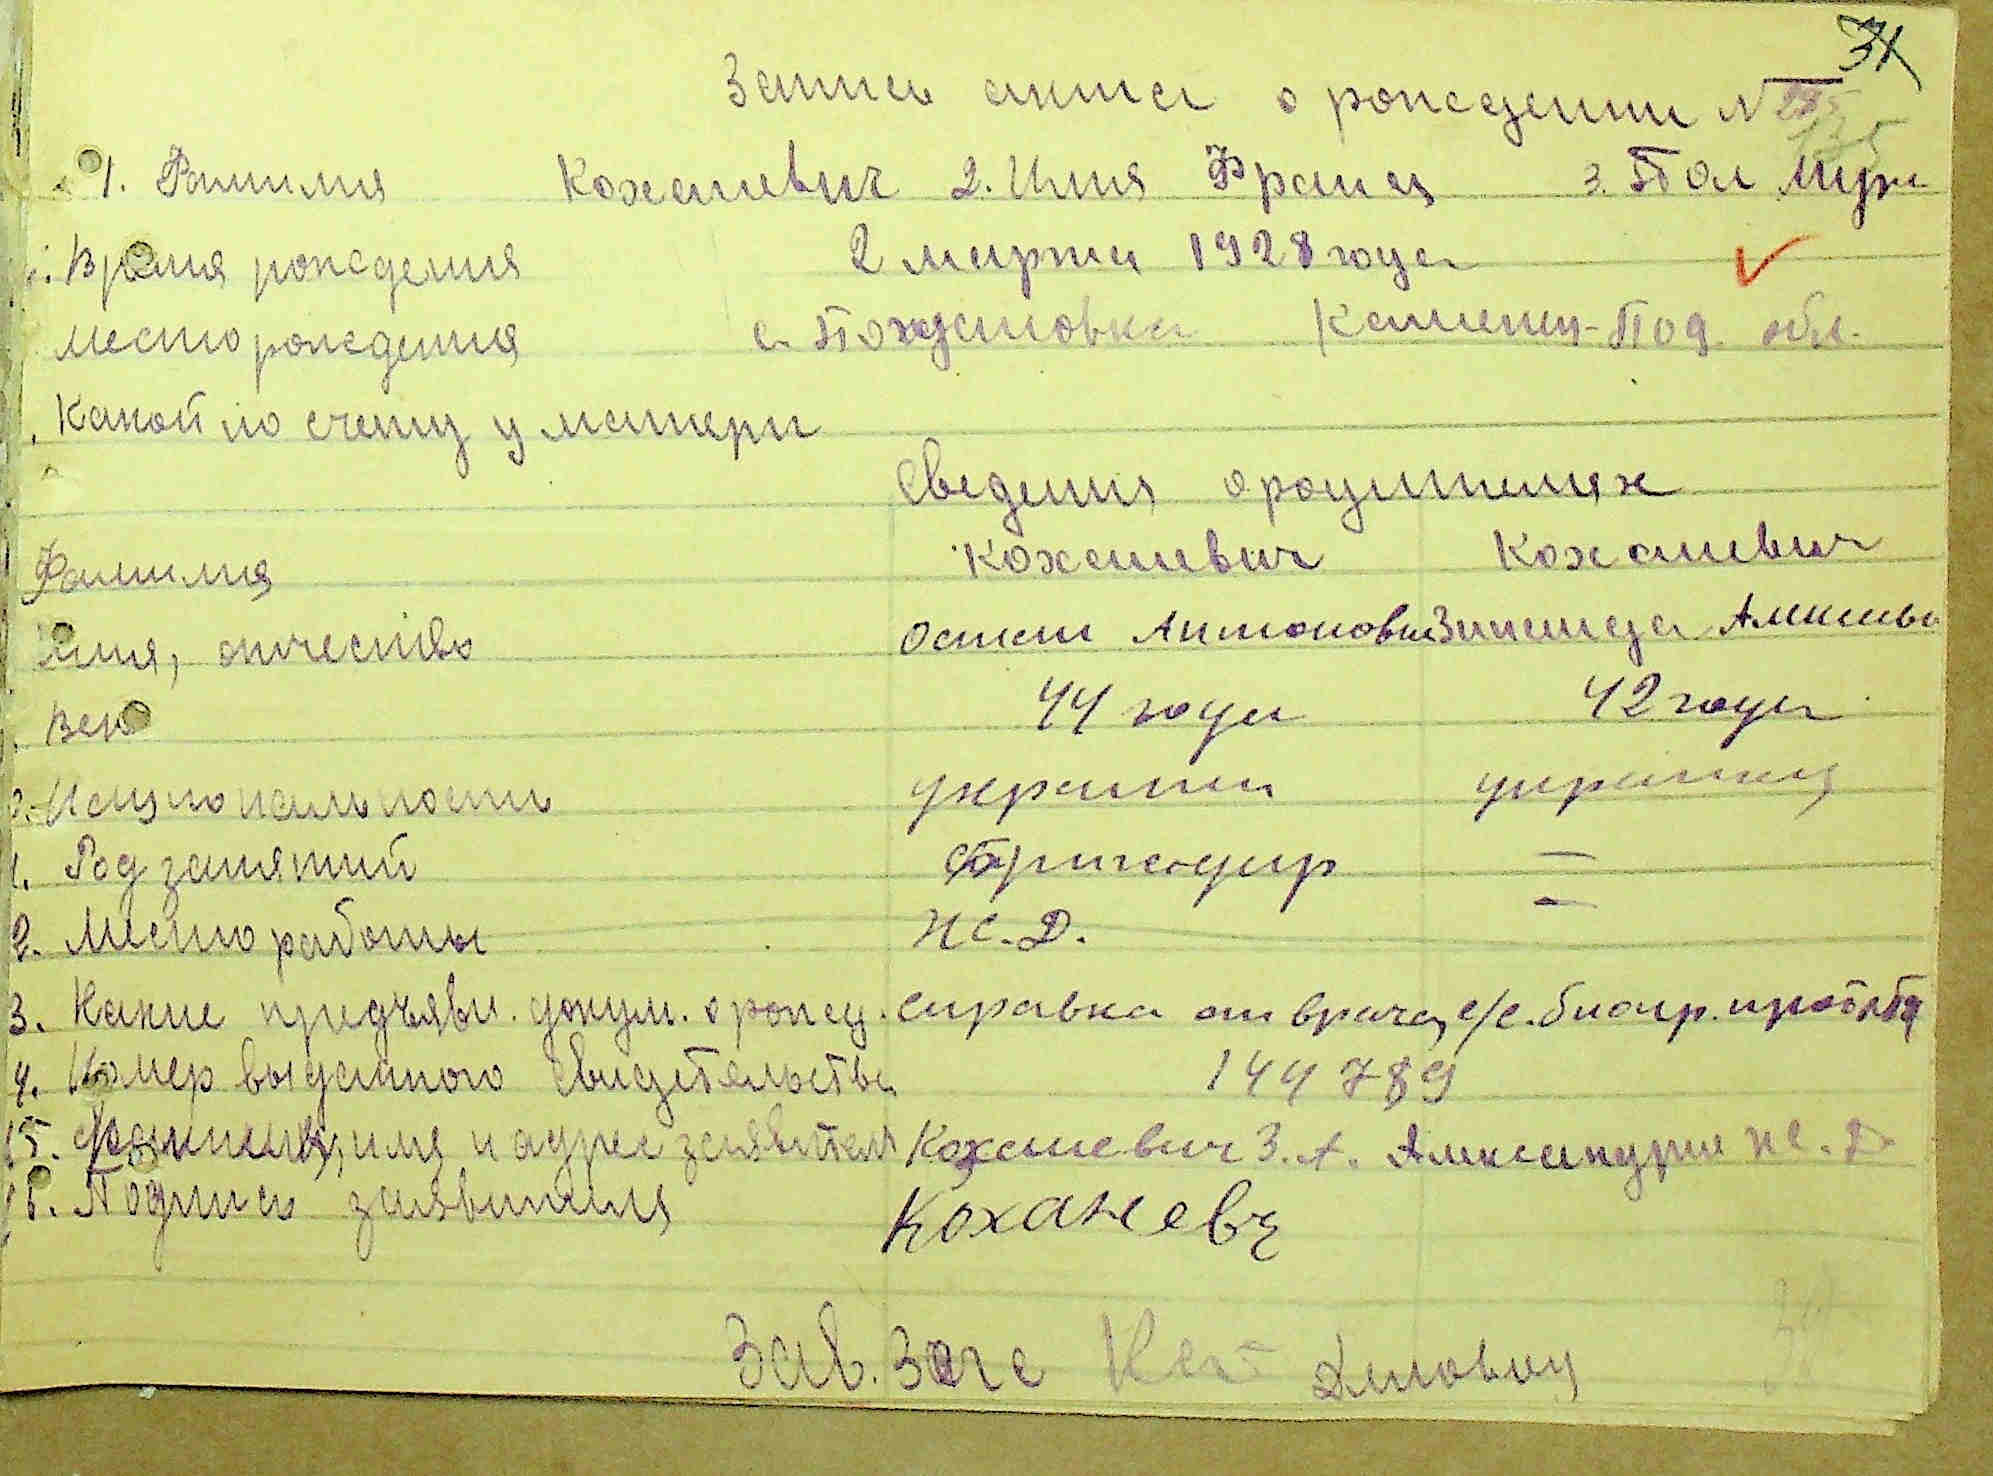 31
Запись акта о рождении N 135
1. Фамилия Коханевич 2. Имя Франц 3. Пол Муж
Время рождения 2 марта 1928 года
Место рождения с. Каменец-Под. обл.
Какой по счету у матери
Сведения о родителях
Фамилия Коханевич Коханевич
Имя, отчество Остап Антонович Зинаида
Век 44 года 42 года
Национальность украин украинка
1. Род занятий бригадир —
2. Место работы Ж.Д. —
3. Какие предъявл. докум. о рожд. справка от врача, с/с.
4. Номер выданного свидетельства 144789
15. Фамилия, имя и адрес заявителя Коханевич З. А. Александрия ж.Д
16. Подпись заявителя Коханевч
Зав. Загс